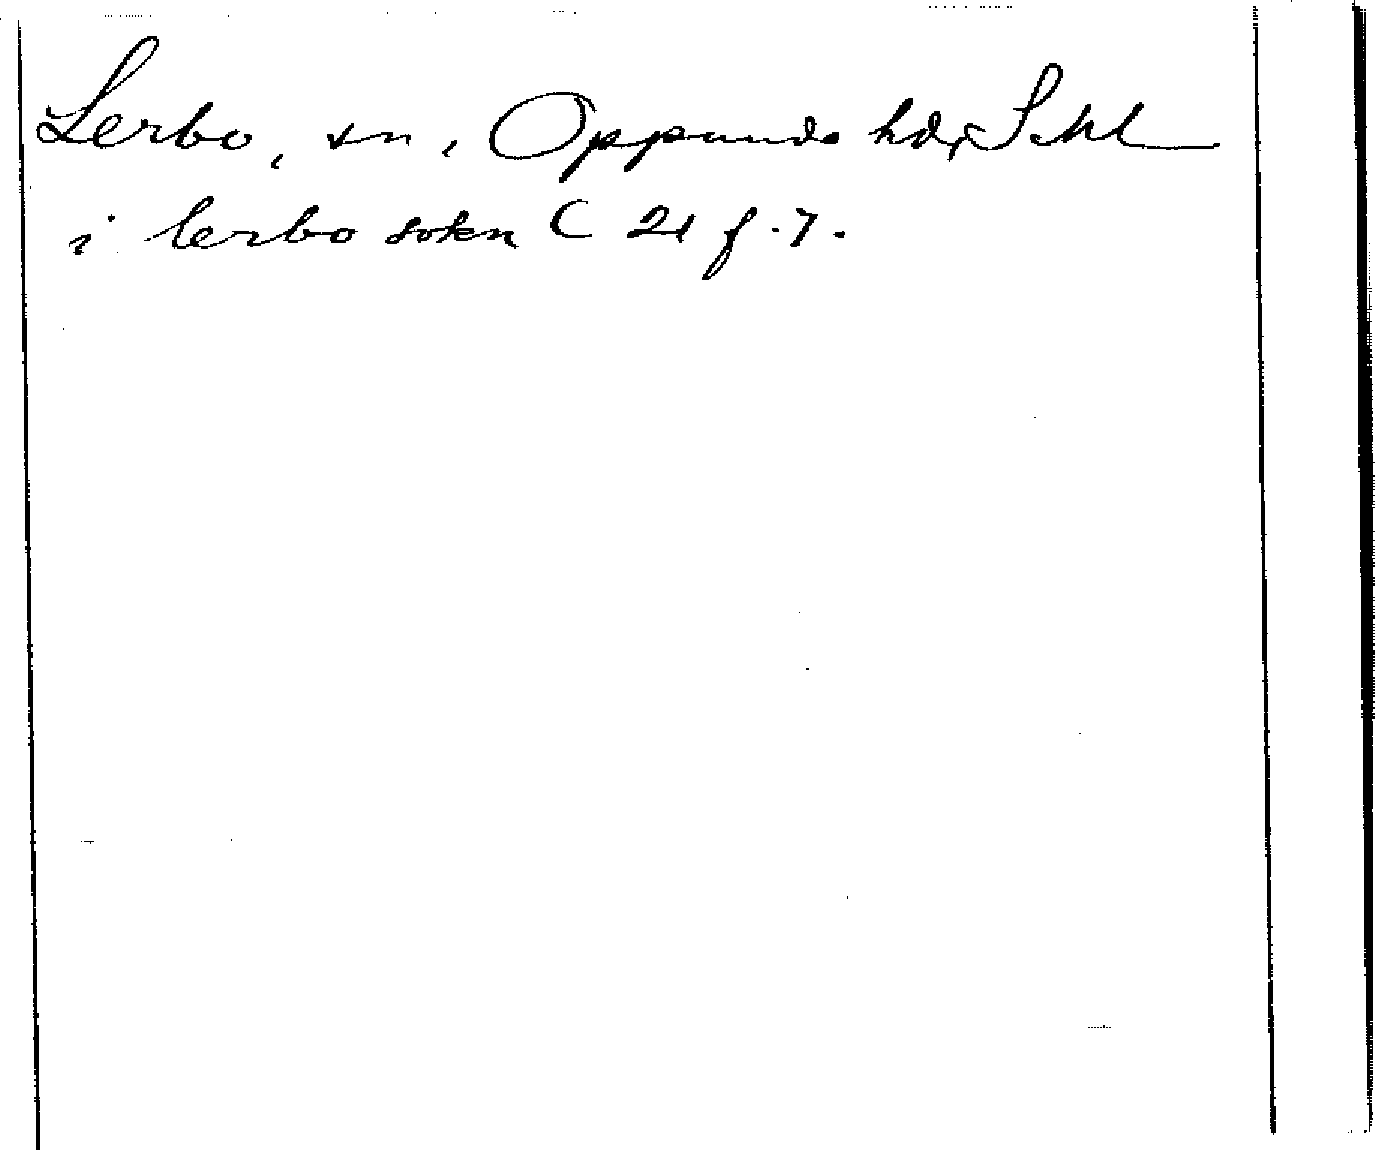 Lerbo, sn, Oppunda hd, Sdml
i lerbo sokn C 21 f. 7.